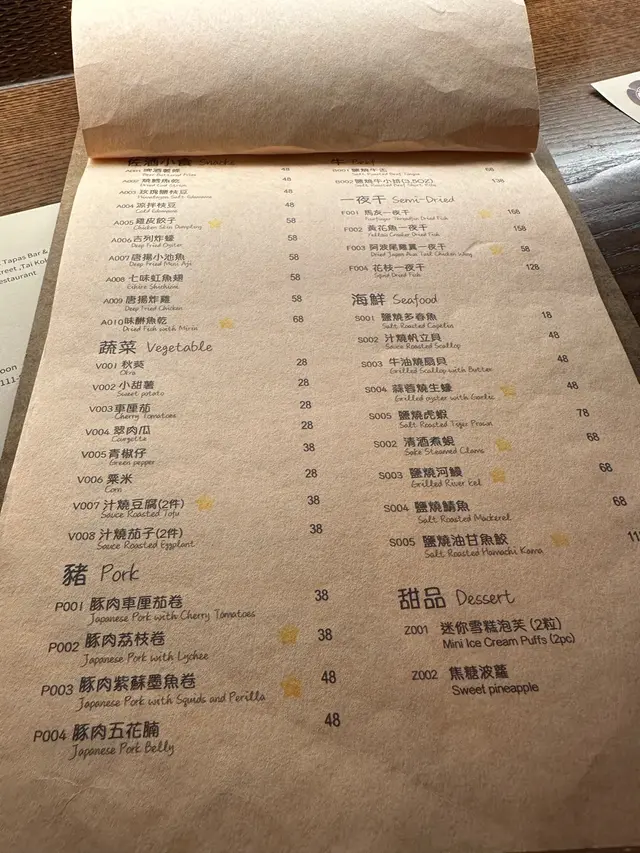 佐酒小食 Snacks
A001 啤酒薯條 48
Beer Battered Fries
A002 燒鱈魚乾 48
Dried Cod Strips
A003 玫瑰鹽枝豆 48
Himalayan Salt Edamame
A004 涼拌枝豆 48
Cold Edamame
A005 雞皮餃子 58
Chicken Skin Dumpling
A006 吉列炸蠔 58
Deep Fried Oyster
A007 唐揚小池魚 58
Deep Fried Mini Aji
A008 七味魟魚翅 58
Eihire Shichimi
A009 唐揚炸雞 58
Deep Fried Chicken
A010 味醂魚乾 68
Dried Fish with Mirin
蔬菜 Vegetable
V001 秋葵 28
Okra
V002 小甜薯 28
Sweet potato
V003 車厘茄 28
Cherry Tomatoes
V004 翠肉瓜 28
Courgette
V005 青椒仔 38
Green pepper
V006 粟米 28
Corn
V007 汁燒豆腐(2件) 38
Sauce Roasted Tofu
V008 汁燒茄子(2件) 38
Sauce Roasted Eggplant
豬 Pork
P001 豚肉車厘茄卷 38
Japanese Pork with Cherry Tomatoes
P002 豚肉荔枝卷 38
Japanese Pork with Lychee
P003 豚肉紫蘇墨魚卷 48
Japanese Pork with Squids and Perilla
P004 豚肉五花腩 48
Japanese Pork Belly
牛 Beef
B001 鹽燒牛舌 68
Salt Roasted Beef Tongue
B002 鹽燒牛小排(3.5OZ) 138
Salt Roasted Beef Short Ribs
一夜干 Semi-Dried
F001 馬友一夜干 158
Fourfinger Threadfin Dried Fish
F002 黃花魚一夜干 158
Yellow Croaker Dried Fish
F003 阿波尾雞翼一夜干 58
Dried Japan Awa Tail Chicken Wing
F004 花枝一夜干 128
Squid Dried Fish
海鮮 Seafood
S001 鹽燒多春魚 18
Salt Roasted Capelin
S002 汁燒帆立貝 48
Sauce Roasted Scallop
S003 牛油燒扇貝 48
Grilled Scallop with Butter
S004 蒜蓉燒生蠔 48
Grilled oyster with Garlic
S005 鹽燒虎蝦 78
Salt Roasted Tiger Prawn
S002 清酒煮蜆 68
Sake Steamed Clams
S003 鹽燒河鰻 68
Grilled River Eel
S004 鹽燒鯖魚 68
Salt Roasted Mackerel
S005 鹽燒油甘魚鮫 11
Salt Roasted Hamachi Kama
甜品 Dessert
Z001 迷你雪糕泡芙 (2粒)
Mini Ice Cream Puffs (2pc)
Z002 焦糖波蘿
Sweet pineapple
Tapas Bar &
treet ,Tai Kok
estaurant
oon
111-